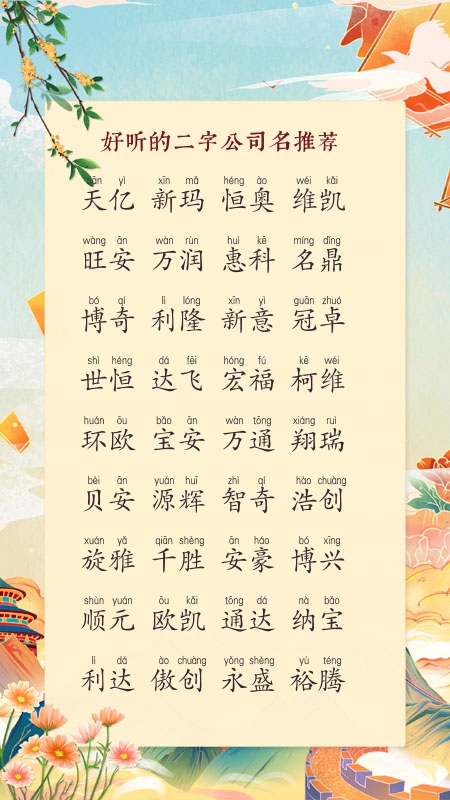 好听的二字公司名推荐
tiān yì xīn mǎ héng ào wéi kǎi
天亿 新玛 恒奥 维凯
wàng ān wàn rùn huì kē míng dǐng
旺安 万润 惠科 名鼎
bó qí lì lóng xīn yì guān zhuó
博奇 利隆 新意 冠卓
shì héng dá fēi hóng fú kē wéi
世恒 达飞 宏福 柯维
huán ōu bǎo ān wàn tōng xiáng ruì
环欧 宝安 万通 翔瑞
bèi ān yuán huī zhì qí hào chuàng
贝安 源辉 智奇 浩创
xuán yǎ qiān shèng ān háo bó xīng
旋雅 千胜 安豪 博兴
shùn yuán ōu kǎi tōng dá nà bǎo
顺元 欧凯 通达 纳宝
lì dá ào chuàng yǒng shèng yù téng
利达 傲创 永盛 裕腾